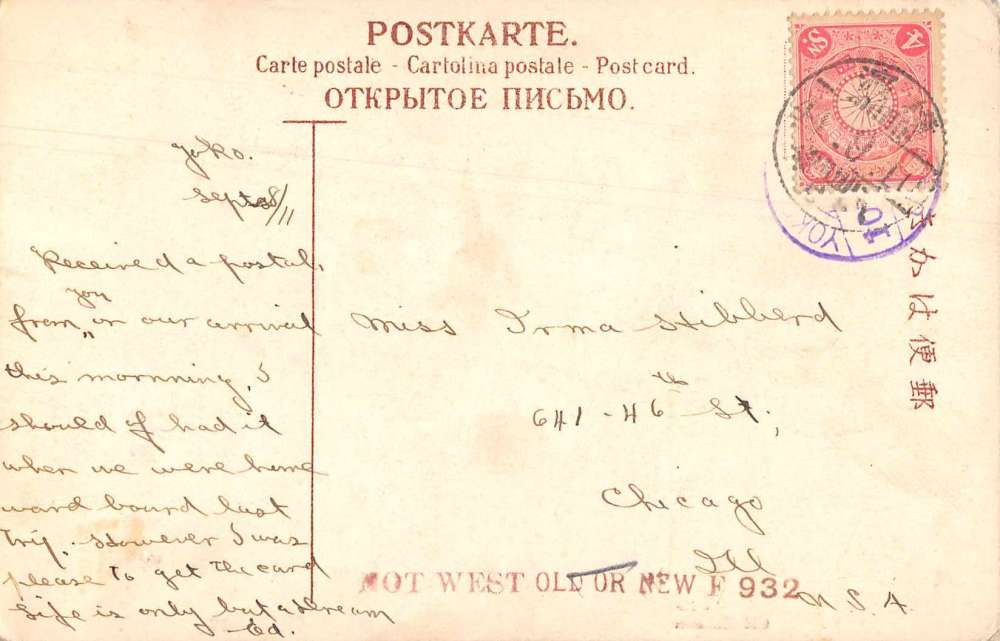 POSTKARTE.
Carte postale - Cartolina postale - Post card.
ОТКРЫТОЕ ПИСЬМО.
4 Sn
Yoko.
Sept 8/11
Received a postal,
from you on our arrival
this mornning, I
should of had it
when we were home
ward bound last
Trip. However I was
please to get the card
Life is only but a dream
Ed.
Miss Irma Hibberd
641 - 46th St;
Chicago
Ill
U.S.A.
YOK
郵便はがき
NOT WEST OLD OR NEW F 932